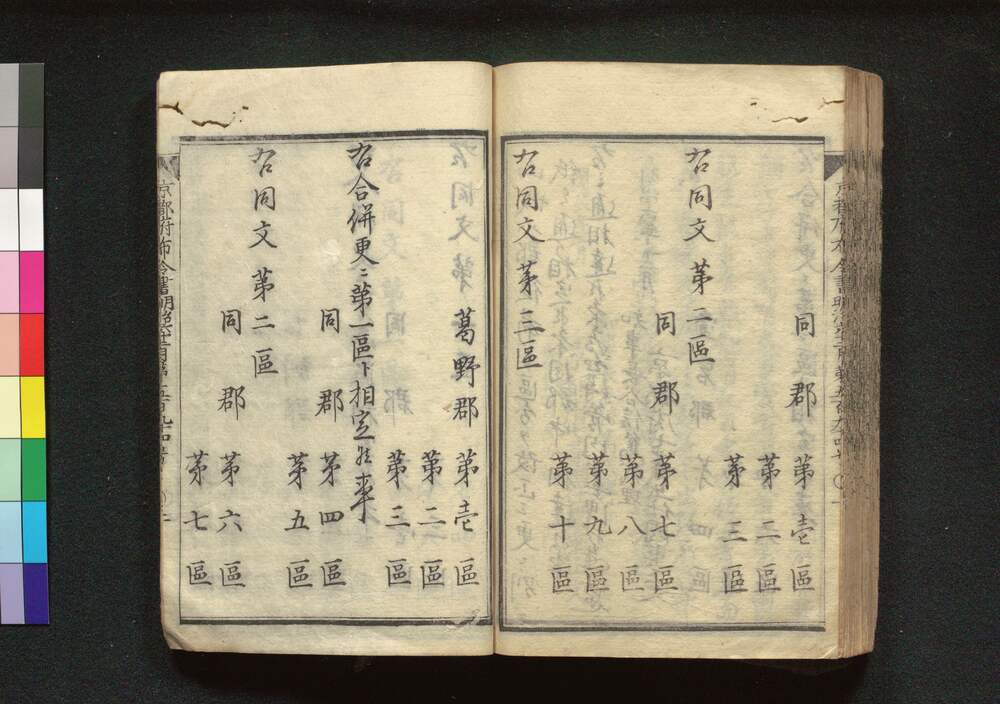 同郡 第壱區
第二區
第三區
右同文第二區
同郡 第七區
第八區
第九區
第十區
右同文第三區
葛野郡 第壱區
第二區
第三區
右合併更ニ第一區ト相定候事
同郡 第四區
第五區
右同文第二區
同郡 第六區
第七區
京都府布令書明治